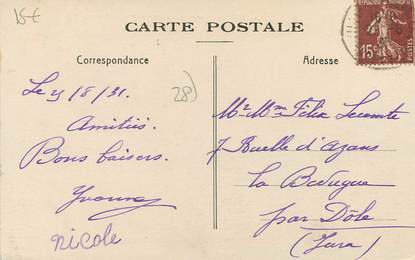 15€
CARTE POSTALE
Correspondance
Adresse
15c
28)
Le 25/8/31.
Amitiés.
Bons baisers.
Yvonne
nicole
Mr Mme Félix Lecomte
7 Ruelle d'Azans
La Bedugue
par Dôle
(Jura)